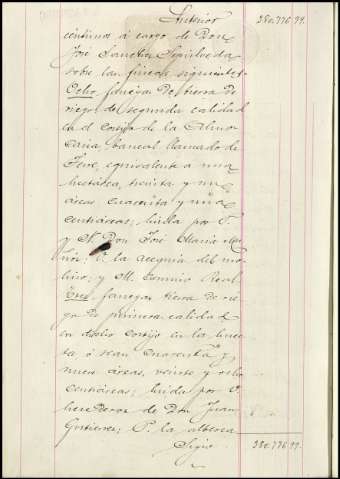 Anterior 380.776.99.
céntimos á cargo de Don
José Sanchez Sepúlveda
sobre las fincas siguientes:
Ocho fanegas de tierra de
riego de segunda calidad
en el cortijo de la
bancal llamado de
equivalente a una
hectárea, treinta y una
áreas cuarenta y una
centiáreas; linda por S.
y N. Don José Maria
P. la acequia del mo-
lino; y M. Camino Real
Tres fanegas tierra de rie-
go de primera calidad
en dicho cortijo en la
ó sean cuarenta y
nueve áreas, veinte y ocho
centiáreas; linda por S.
herederos de Don Juan
Gutierrez; P. la alberca
Sigue 380.776.99.